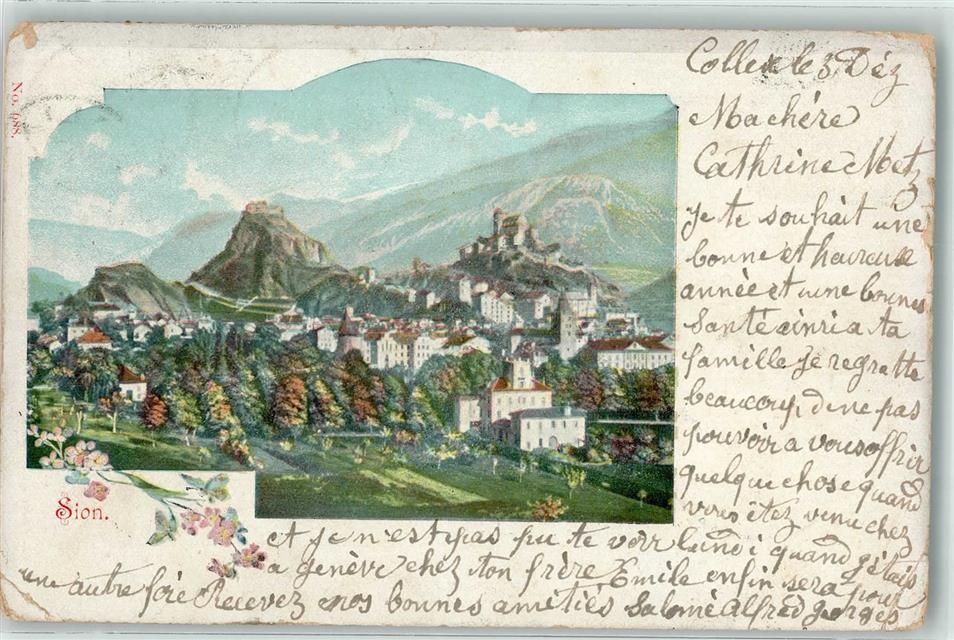 No. 988.
Sion.
Collex le 3 Déz
Ma chére
Cathrine Metz
Je te souhait une
bonne et heureuse
année et une bonnes
Santé ainsi a ta
famille Je regrette
beaucoup, de ne pas
pouvoir a vous offrir
quelque chose quand
vous étez venu chez
et je n'est pas pu te voir lundi quand j'étais
a genève chez ton frère Emile enfin sera pour
une autre foie Recevez nos bonnes ametiés Salomé Alfred gorges